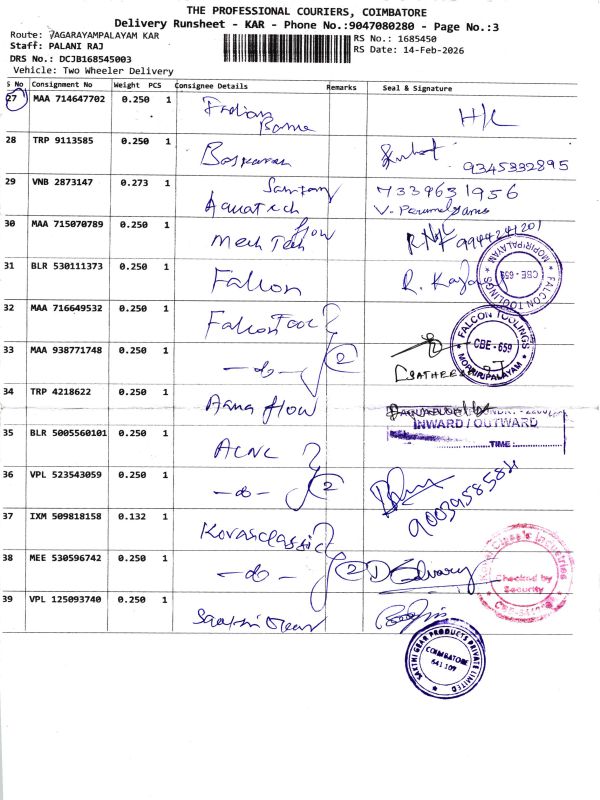 THE PROFESSIONAL COURIERS, COIMBATORE
Delivery Runsheet - KAR - Phone No.:9047080280 - Page No.:3
Route: JAGARAYAMPALAYAM KAR
RS No.: 1685450
Staff: PALANI RAJ
RS Date: 14-Feb-2026
DRS No.: DCJB168545003
Vehicle: Two Wheeler Delivery
S No Consignment No Weight PCS Consignee Details Remarks Seal & Signature
27 MAA 714647702 0.250 1 H/L
28 TRP 9113585 0.250 1 Baskaran 9345332895
29 VNB 2873147 0.273 1 Aquatech 7339631956
30 MAA 715070789 0.250 1 Mech Tech flow 9944241201
31 BLR 530111373 0.250 1 Falcon R.
FALCON TOOLINGS CBE - 659 MOPIRIPALAYAM
32 MAA 716649532 0.250 1 Falcon Tool
FALCON TOOLINGS CBE - 659 MOPIRIPALAYAM
33 MAA 938771748 0.250 1 -do- 2
34 TRP 4218622 0.250 1 flow
INWARD / OUTWARD
TIME:
35 BLR 5005560101 0.250 1
36 VPL 523543059 0.250 1 -do- 2
37 IXM 509818158 0.132 1
38 MEE 530596742 0.250 1 -do- 2
Checked by
Security
39 VPL 125093740 0.250 1
SAKTHI GEAR PRODUCTS PRIVATE LIMITED
COIMBATORE
641 107